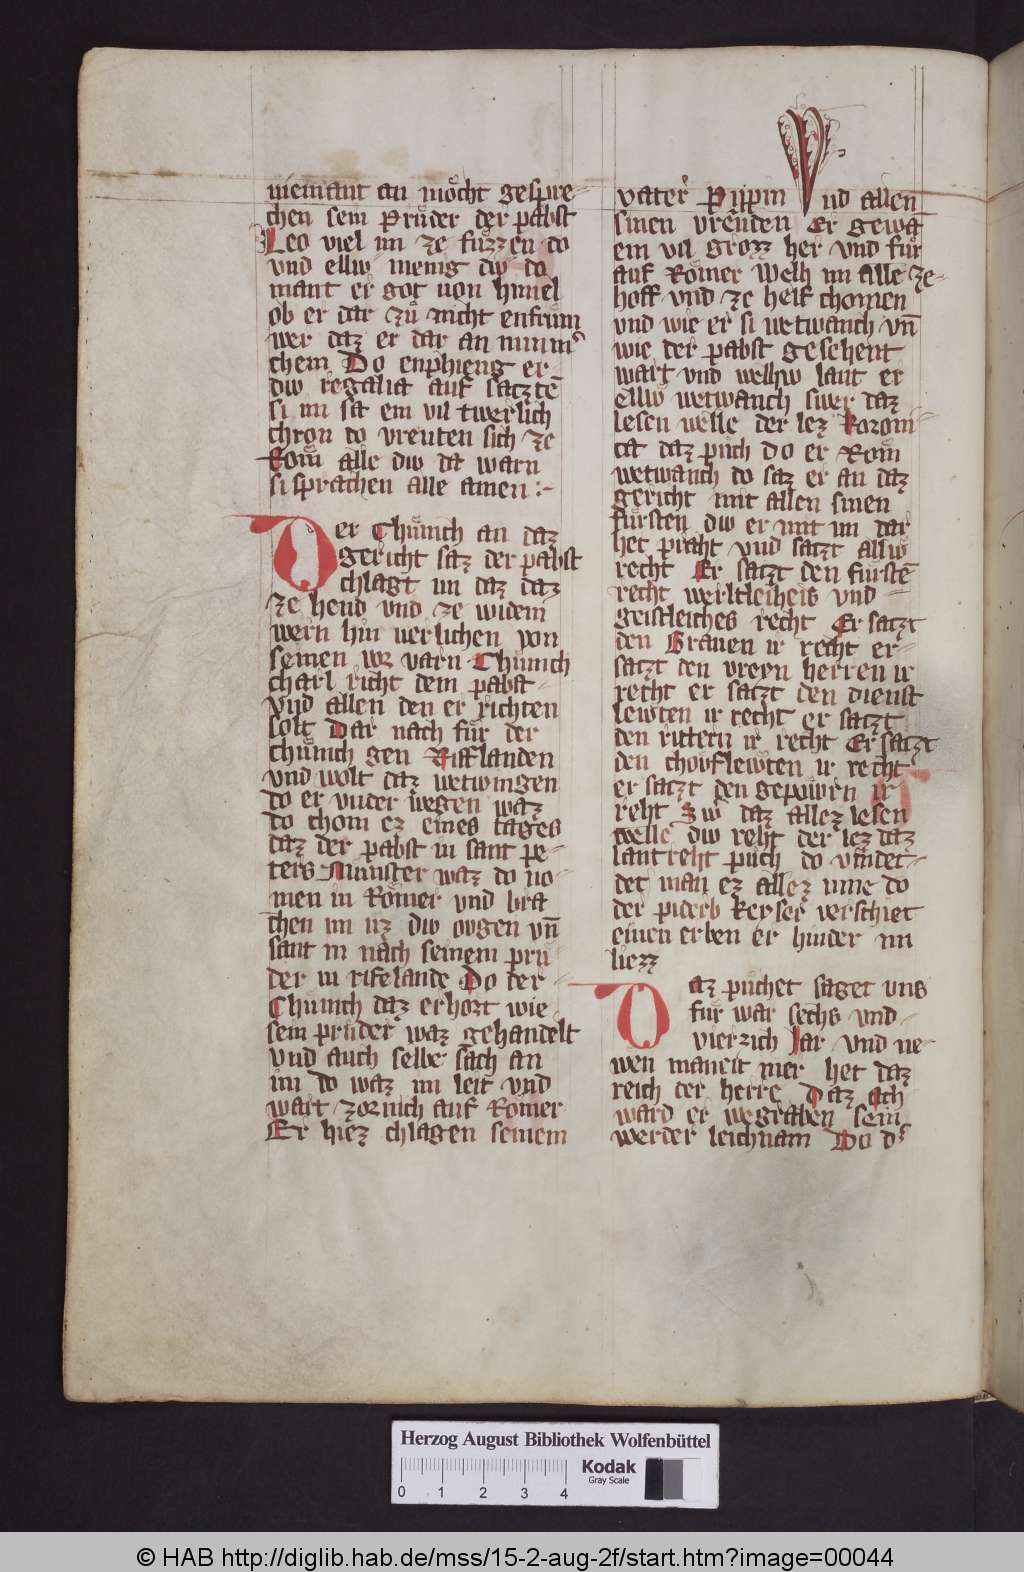 niemant an möcht gespre-
chen sein Pruder der pabst
Leo viel im ze füzzen do
vnd elliv menig div do
mant er got von himel
ob er dar zů nicht enfrum
wer daz er dar an nimm
chem Do enphieng er
div regalia auf satzte
si im sa em vil twerlich
chron do vreuten sich ze
Rom alle div da warn
si sprachen alle amen :-
Der Chünich an daz
gericht saz der pabst
chlagt im daz daz
ze hend vnd ze widem
wern hin verlichen von
seinen vor varn Chünich
charl richt dem pabst
vnd allen den er richten
solt Dar nach für der
chünich gen Rifflanden
vnd wolt daz wetwingen
do er vnder wegen waz
do chom ez eines tages
daz der pabst in sant pe-
ters Münster waz do no-
men in Römer vnd bra
chen im uz div ovgen vn̄
sant in nach seinem pru
der in rifelande Do der
Chünich daz erhort wie
sein prüder waz gehandelt
vnd auch selbe sach an
im do waz im leit vnd
wart zornich auf Romer
Er hiez chlagen seinem
vater Pippin Vnd allen
sinen vreunden Er gewa
em vil grozz her vnd für
auf Römer Welh im alle ze-
hoff vnd ze helf chomen
vnd wie er si wetwanch vn̄
wie der pabst gesehent
wart vnd welhiv lant er
elliv wetwanch swer daz
lesen welle der lez koroni
ca daz půch Do er Rom
wetwanch do saz er an daz
gericht mit allen sinen
fürsten div er mit im dar
het praht vnd satzt alliv
recht Er satzt den fürste
recht werltleiheis vnd
geistleiches recht Er satzt
den Grauen ir recht er-
satzt den vreyn herren ir
recht er satzt den dienst
lewten ir recht er satzt
den rittern ir recht Er satzt
den chovflewten ir recht
er satzt den gepowrn ir
reht Sw daz allez lesen
welle div reht der lez daz
lantreht půch do vindet
det man ez allez inne do
der piderb keyser verschiet
einen erben er hinder im
liezz
Daz půchet saget uns
für war sechs vnd
vierzich Jar vnd ne-
wen maneit mer het daz
reich der herre Daz Ach
ward er wegraben sein
werder leichnam Do d
Herzog August Bibliothek Wolfenbüttel
0 1 2 3 4
Kodak
Gray Scale
© HAB http://diglib.hab.de/mss/15-2-aug-2f/start.htm?image=00044